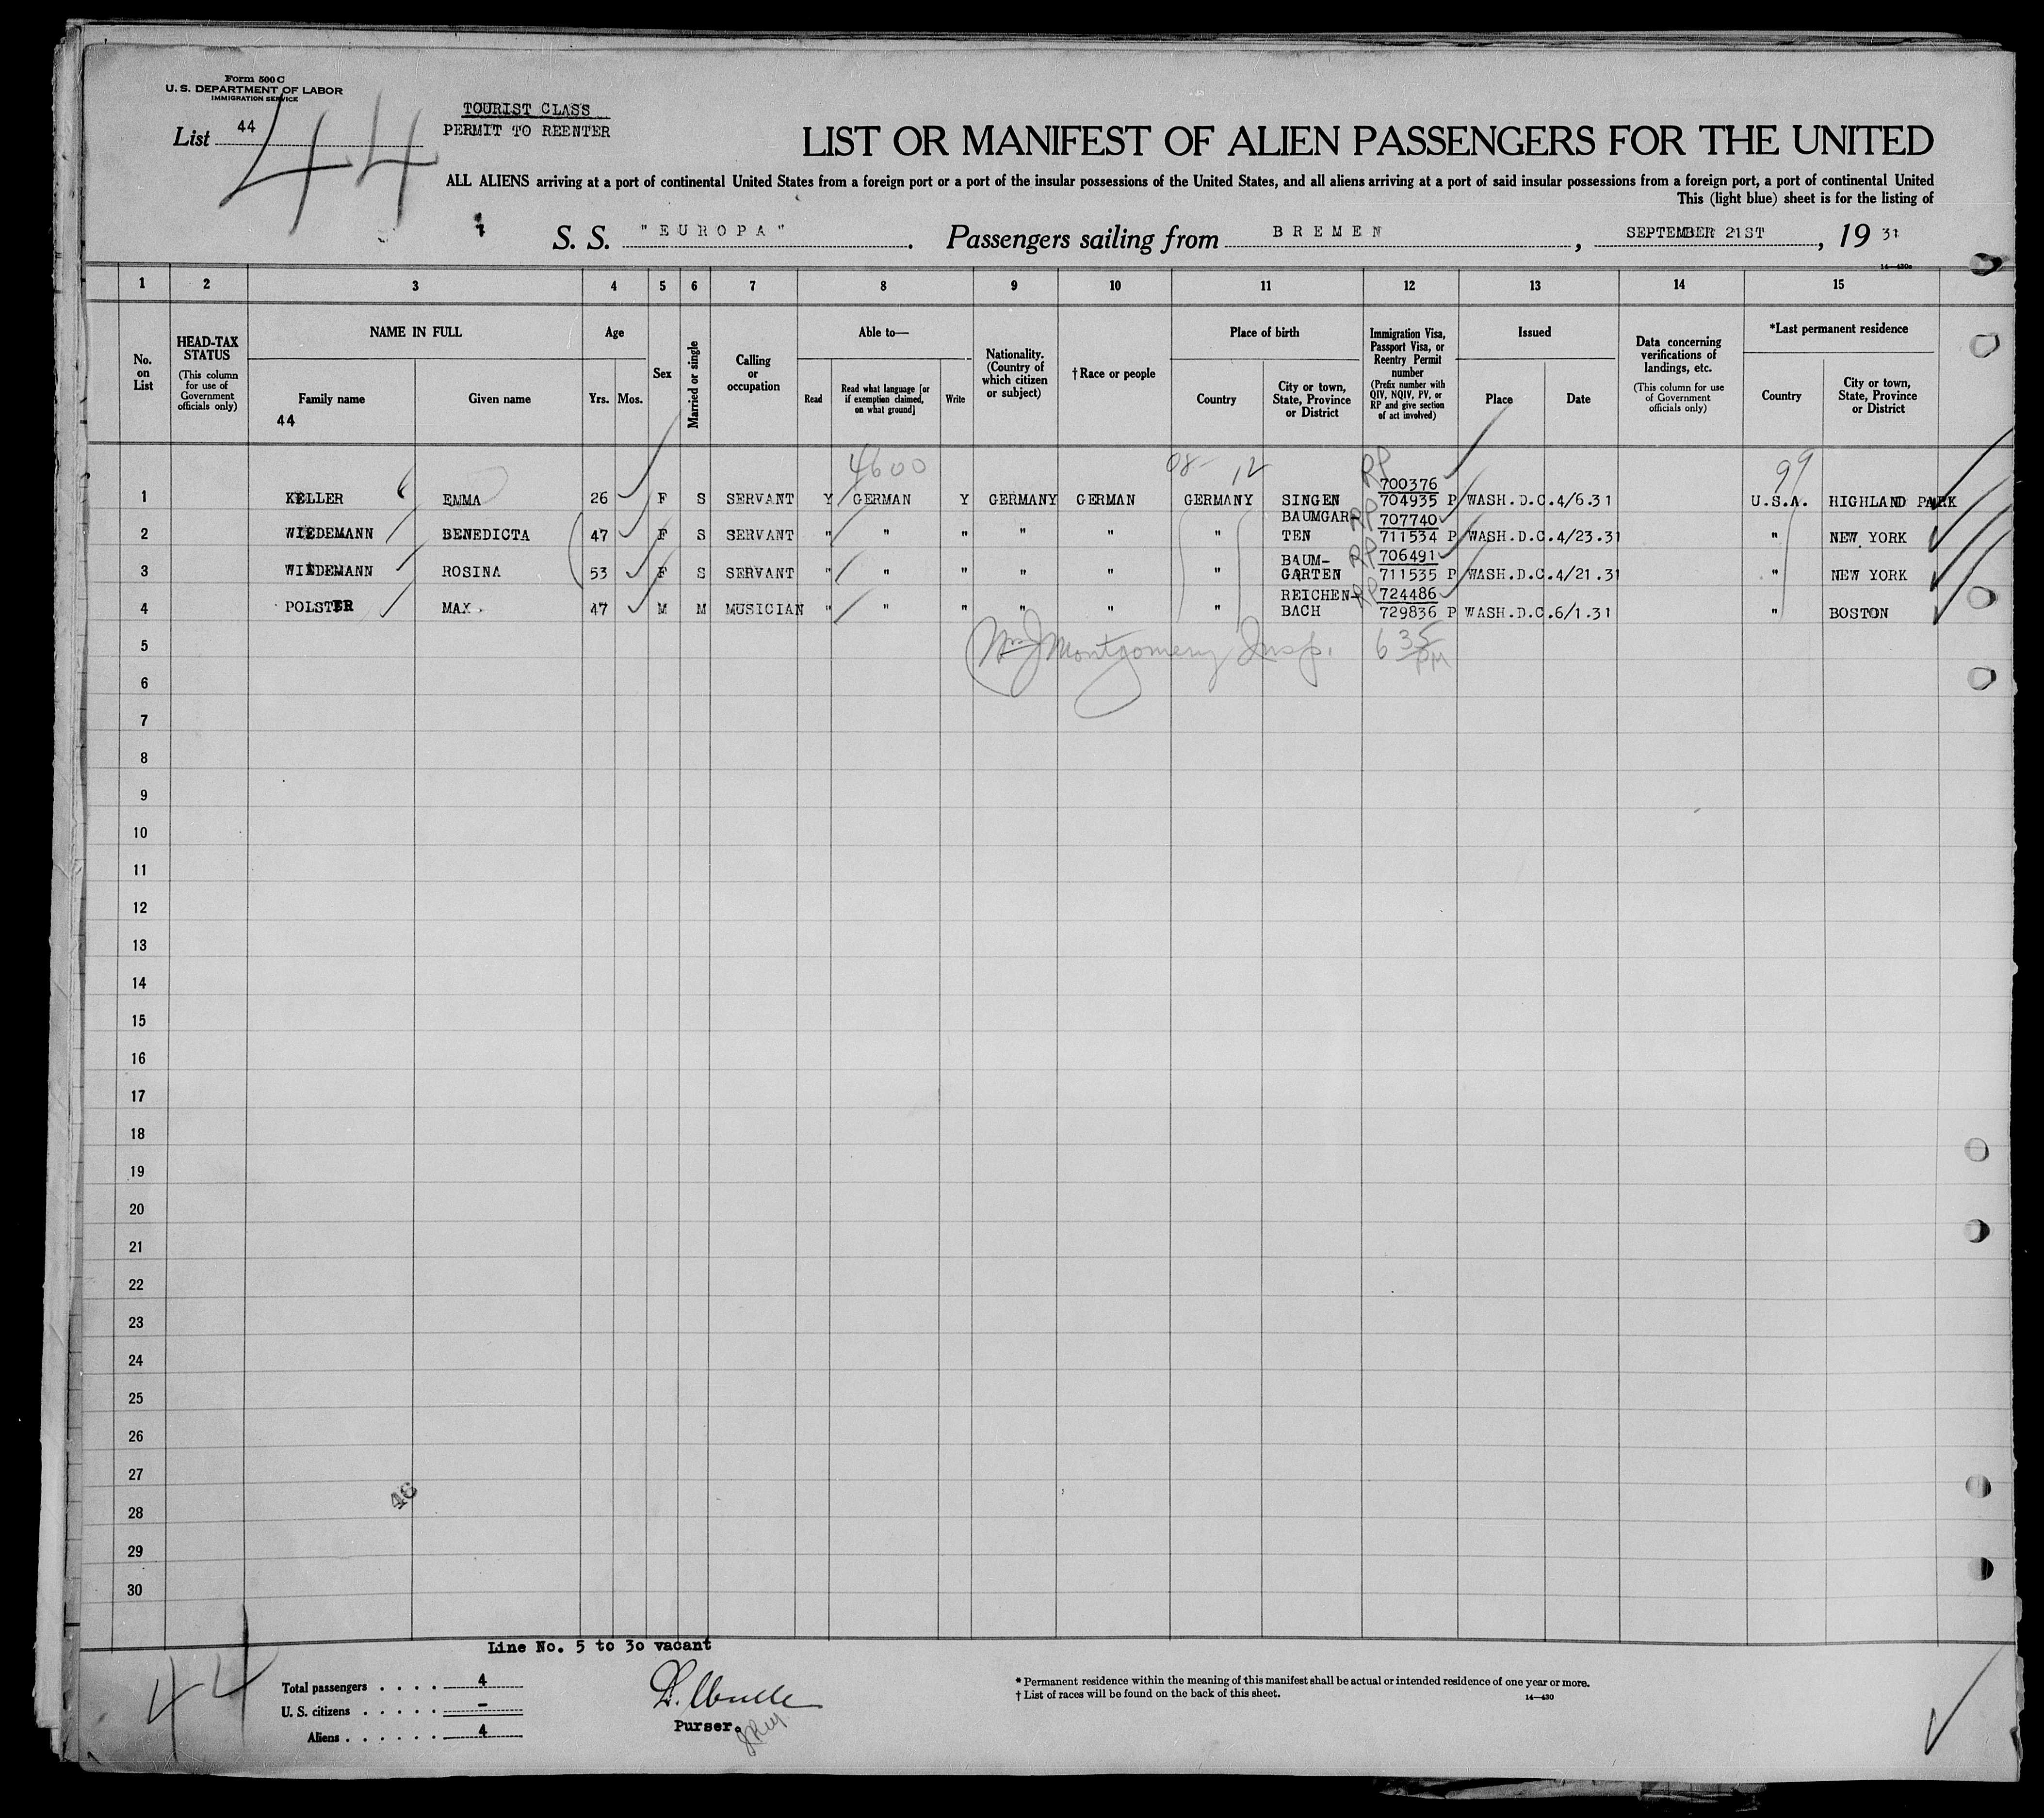 Form 500 C
U. S. DEPARTMENT OF LABOR
IMMIGRATION SERVICE
List 44
44
TOURIST CLASS
PERMIT TO REENTER
LIST OR MANIFEST OF ALIEN PASSENGERS FOR THE UNITED
ALL ALIENS arriving at a port of continental United States from a foreign port or a port of the insular possessions of the United States, and all aliens arriving at a port of said insular possessions from a foreign port, a port of continental United
This (light blue) sheet is for the listing of
S. S. "EUROPA". Passengers sailing from BREMEN, SEPTEMBER 21ST, 19 31
14—430a
1 2 3 4 5 6 7 8 9 10 11 12 13 14 15
No. on List
HEAD-TAX STATUS (This column for use of Government officials only)
NAME IN FULL
Family name
44
Given name
Age
Yrs. Mos.
Sex
Married or single
Calling or occupation
Able to—
Read
Read what language [or if exemption claimed, on what ground]
Write
Nationality. (Country of which citizen or subject)
† Race or people
Place of birth
Country
City or town, State, Province or District
Immigration Visa, Passport Visa, or Reentry Permit number (Prefix number with QIV, NQIV, PV, or RP and give section of act involved)
Issued
Place
Date
Data concerning verifications of landings, etc. (This column for use of Government officials only)
*Last permanent residence
Country
City or town, State, Province or District
4600 08- 12 RP 99
700376
1 KELLER EMMA 26 F S SERVANT Y GERMAN Y GERMANY GERMAN GERMANY SINGEN 704935 P WASH.D.C. 4/6.31 U.S.A. HIGHLAND PARK
BAUMGAR- RP 707740
2 WIEDEMANN BENEDICTA 47 F S SERVANT " " " " " " TEN 711534 P WASH.D.C. 4/23.31 " NEW YORK
BAUM- RP 706491
3 WIEDEMANN ROSINA 53 F S SERVANT " " " " " " GARTEN 711535 P WASH.D.C. 4/21.31 " NEW YORK
REICHEN- RP 724486
4 POLSTER MAX. 47 M M MUSICIAN " " " " " " BACH 729836 P WASH.D.C. 6/1.31 " BOSTON
5 Wm J Montgomery Insp. 6 35 PM
6
7
8
9
10
11
12
13
14
15
16
17
18
19
20
21
22
23
24
25
26
27
48
28
29
30
Line No. 5 to 30 vacant
44
Total passengers . . . . 4
U. S. citizens . . . . . –
Aliens . . . . . . 4
Purser.
* Permanent residence within the meaning of this manifest shall be actual or intended residence of one year or more.
† List of races will be found on the back of this sheet.
14—430